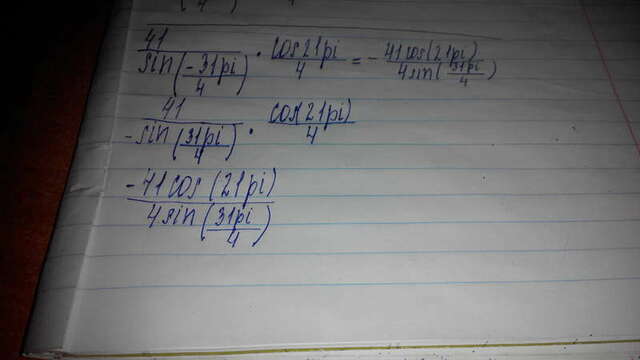 41/sin(-31pi/4) · cos21pi/4 = - 41cos(21pi)/4sin(31pi/4)
41/-sin(31pi/4) · cos(21pi)/4
-41cos(21pi)/4sin(31pi/4)